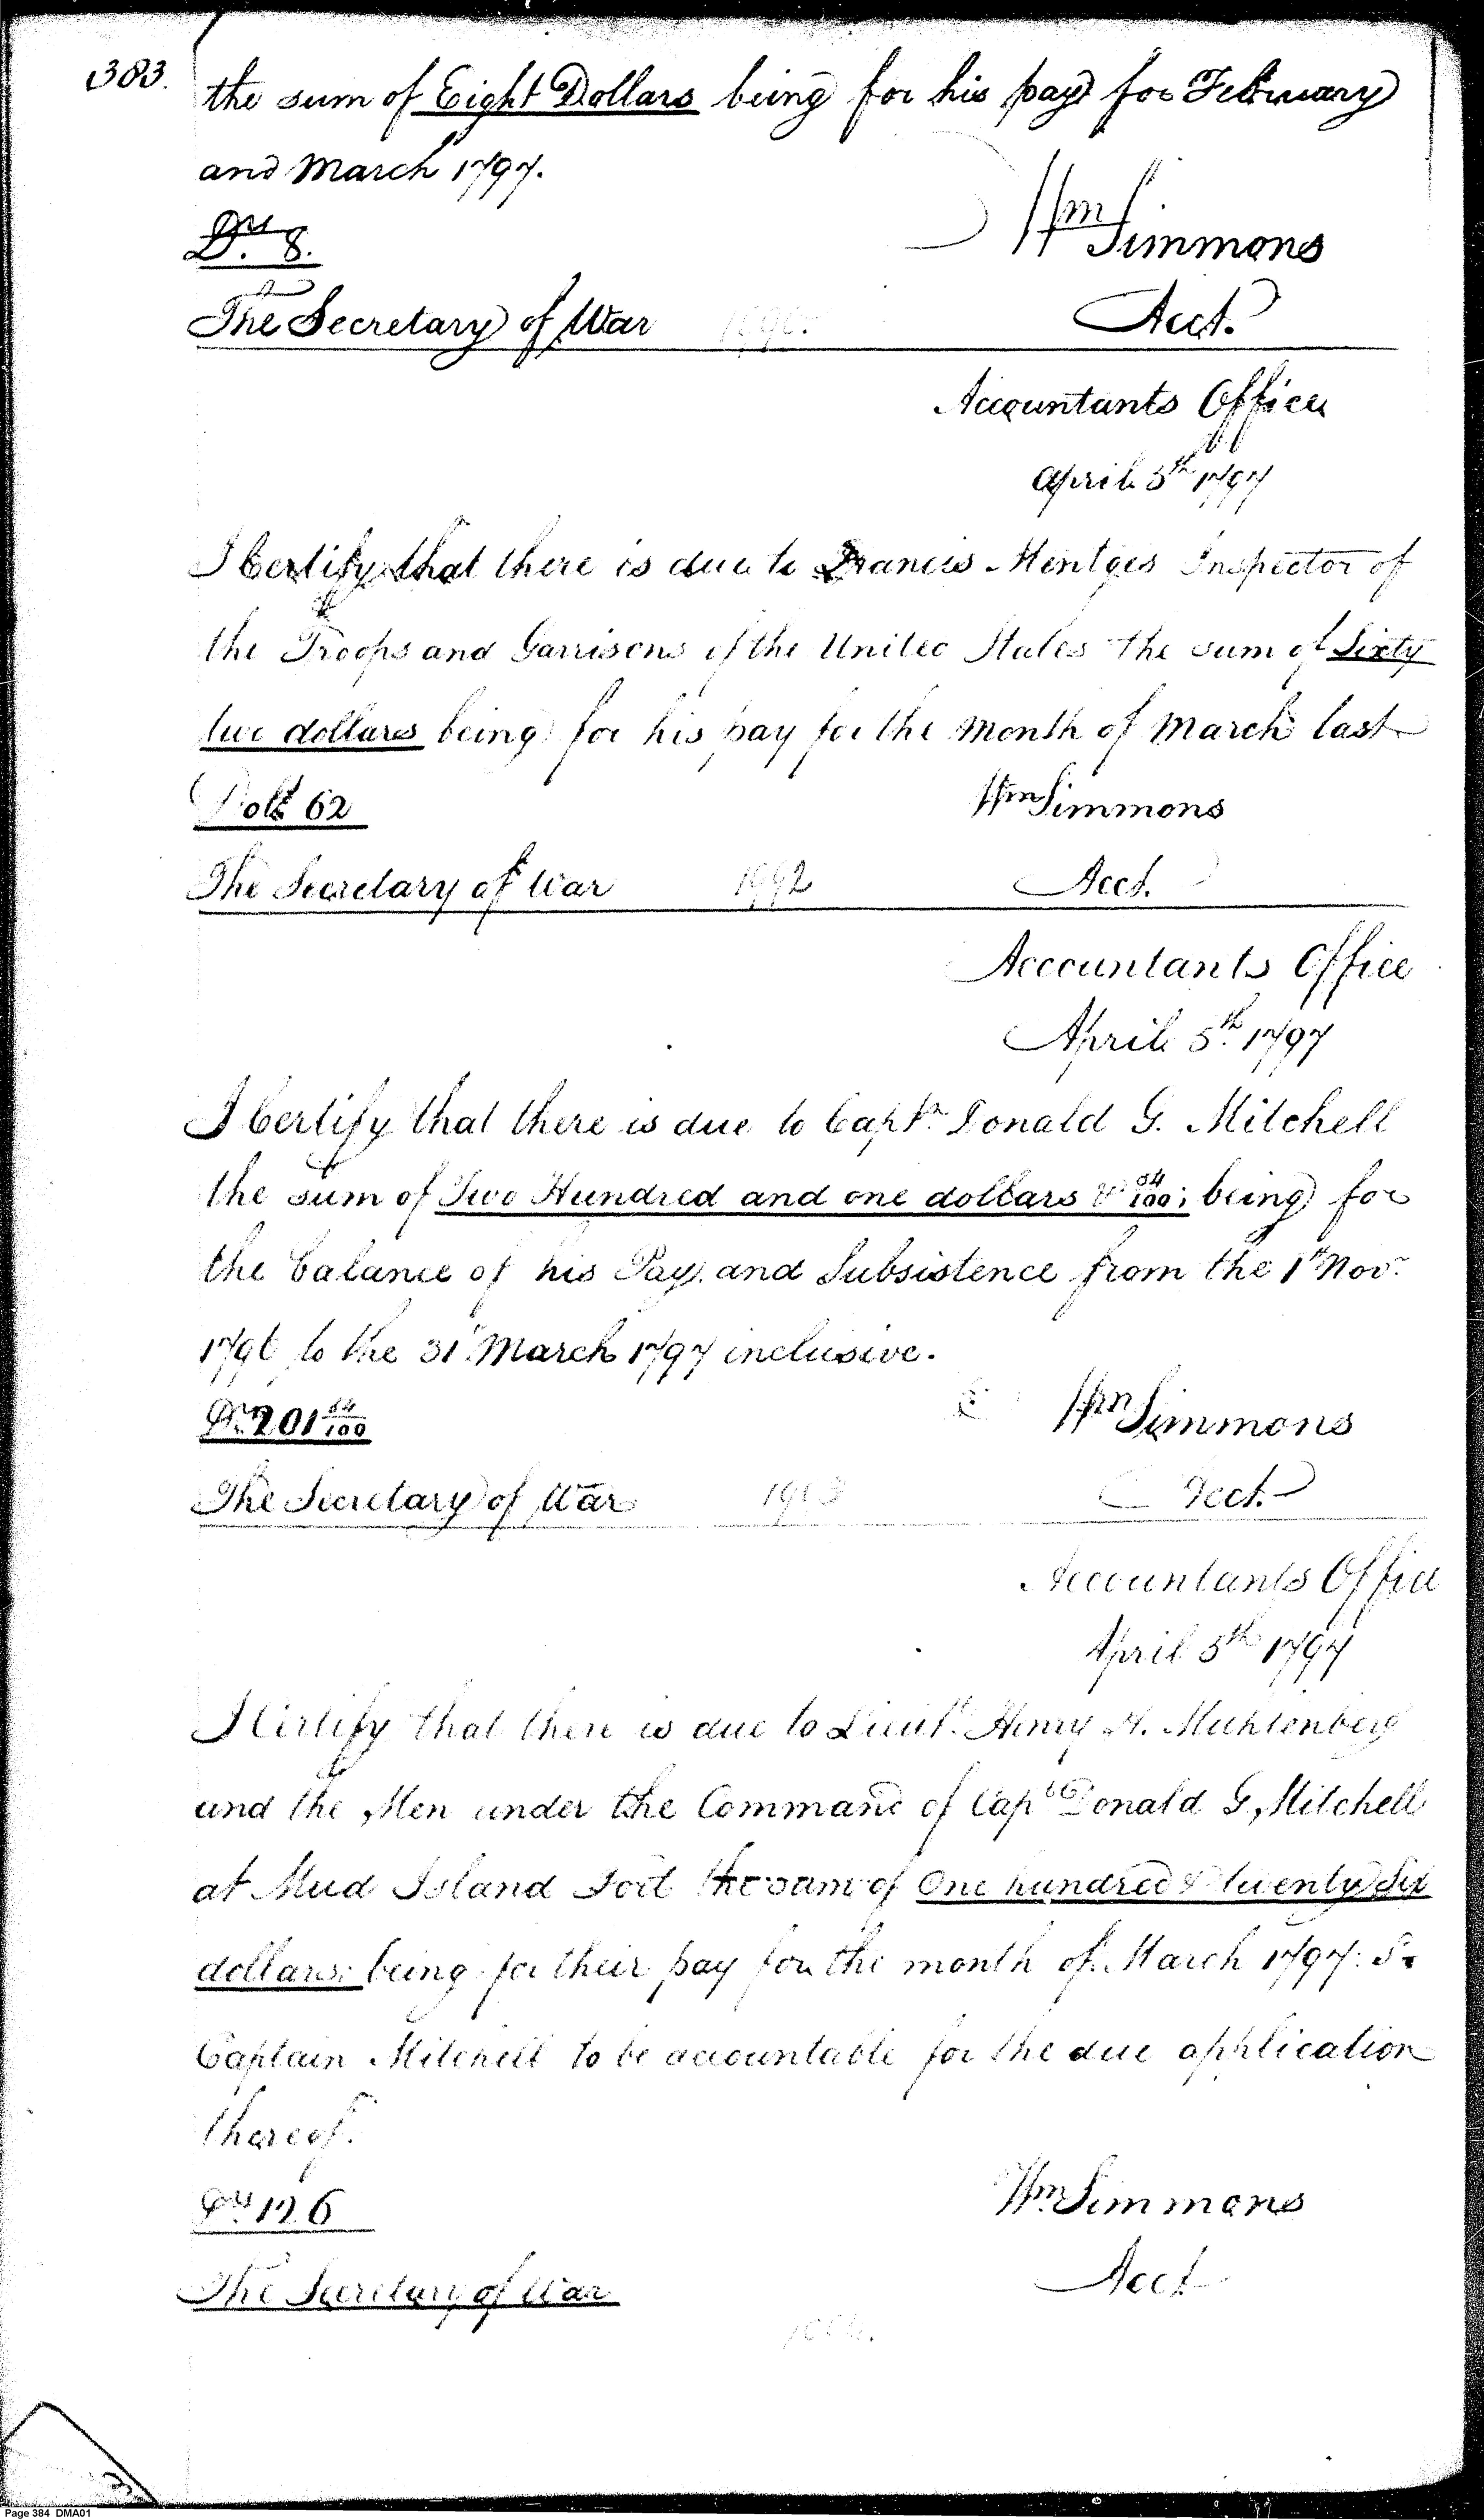 383.
the sum of Eight Dollars being for his pay for February
and March 1797.
Drs. 8.
Wm Simmons
The Secretary of War
Acct.
Accountants Office
April 5th 1797
I Certify that there is due to Francis Mentges Inspector of
the Troops and Garrisons of the United States the sum of Sixty
two dollars being for his pay for the month of March last
Dolls 62
Wm Simmons
The Secretary of War 1992 Acct.
Accountants Office
April 5th. 1797
I Certify that there is due to Capt. Donald G. Mitchell
the sum of Two Hundred and one dollars & 54/100; being for
the balance of his Pay and Subsistence from the 1st Novr.
1796 to the 31st March 1797 inclusive.
Drs. 201 54/100
Wm Simmons
The Secretary of War 1993 Acct.
Accountants Office
April 5th 1797
I Certify that there is due to Lieut. Henry H. Muhlenberg
and the Men under the Command of Capt. Donald G. Mitchell
at Mud Island Fort the sum of One hundred & twenty Six
dollars; being for their pay for the month of March 1797.
Captain Mitchell to be accountable for the due application
thereof.
Drs. 126
Wm. Simmons
The Secretary of War
Acct
Page 384 DMA01